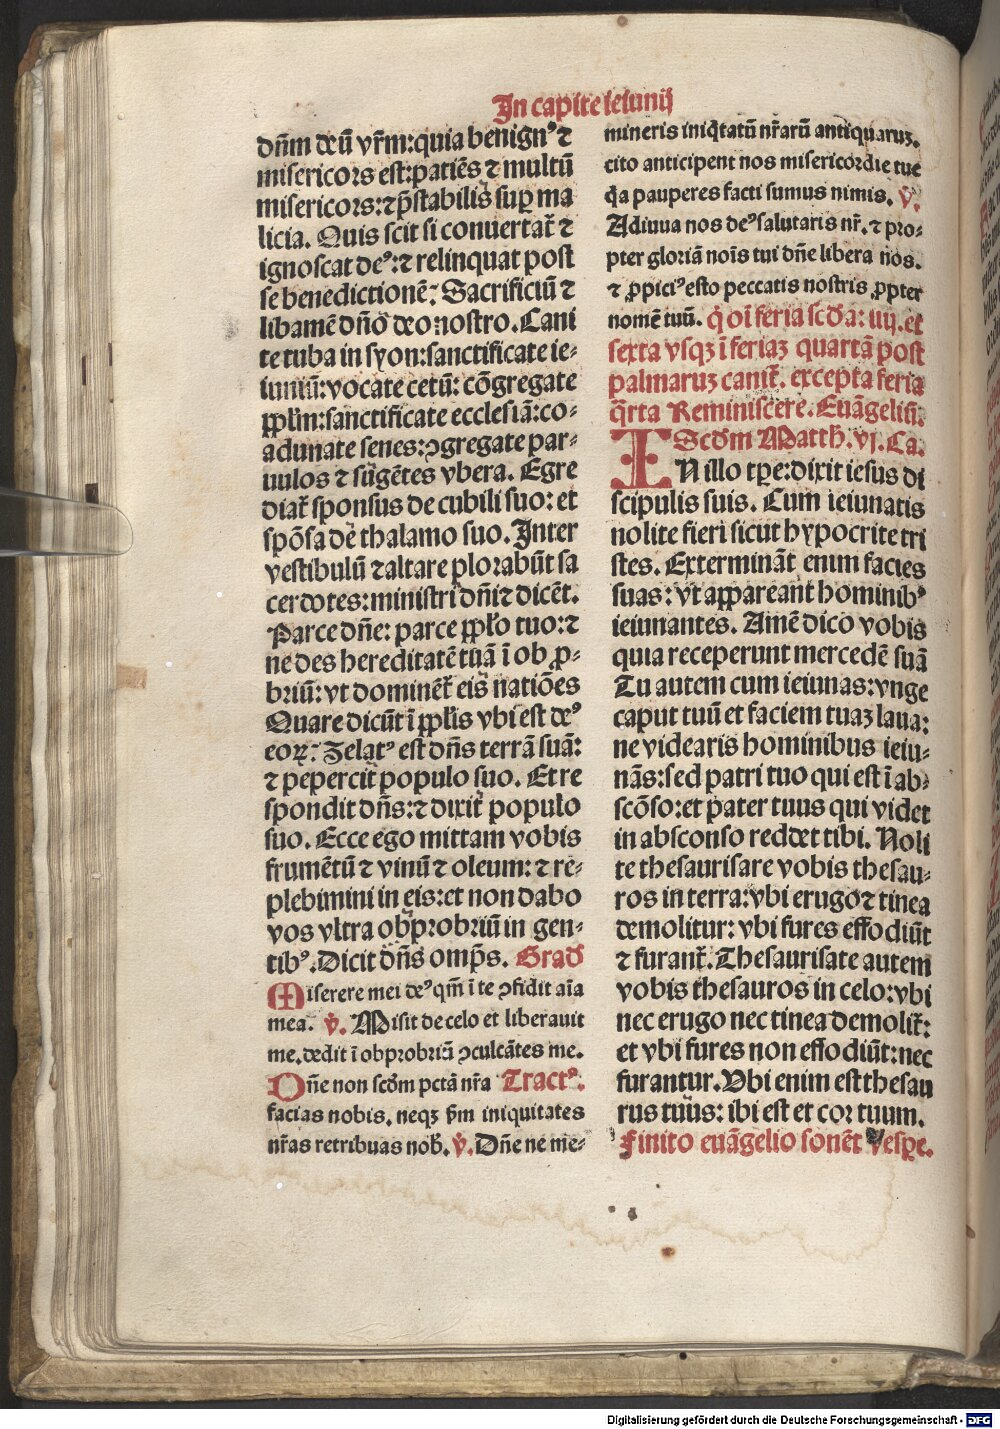 In capite ieiunij
dn̄m deū vr̄m:quia benignꝰ ⁊
misericors est:patiēs ⁊ multū
misericors:⁊ p̄stabilis suꝑ ma
licia. Quis scit si conuertat̄ ⁊
ignoscat deꝰ:⁊ relinquat post
se benedictionē. Sacrificiū ⁊
libamē dn̄o deo nostro. Cani
te tuba in syon:sanctificate ie-
iuniū:vocate cetū: cōgregate
ppl̄m:sanctificate ecclesiā:co-
adunate senes:ꝯgregate par-
uulos ⁊ sugētes vbera. Egre
diat̄ sponsus de cubili suo: et
spōsa de thalamo suo. Inter
vestibulū ⁊ altare plorabūt sa
cerdotes:ministri dn̄i ⁊ dicēt.
Parce dn̄e: parce ppl̄o tuo:⁊
ne des hereditatē tuā ī ob ꝓ-
briū: vt dominēt̄ eis natiōes
Quare dicūt ī ppl̄is vbi est deꝰ
eoꝝ. Zelatꝰ est dn̄s terrā suā:
⁊ pepercit populo suo. Et re
spondit dn̄s:⁊ dixit populo
suo. Ecce ego mittam vobis
frumētū ⁊ vinū ⁊ oleum: ⁊ re-
plebimini in eis:et non dabo
vos vltra obprobriū in gen-
tibꝰ. Dicit dn̄s omp̄s. Grad̄
Miserere mei deꝰ qm̄ ī te ꝯfidit aīa
mea. ℣. Misit de celo et liberauit
me. dedit ī obprobriū ꝯculcātes me.
Dn̄e non scd̄m pctā nr̄a Tractꝰ.
facias nobis. neqꝫ ẜm iniquitates
nr̄as retribuas nob̄. ℣. Dn̄e ne me-
mineris iniq̄tatū nr̄arū antiquaruꝫ.
cito anticipent nos misericordie tue
q̄a pauperes facti sumus nimis. ℣.
Adiuua nos deꝰ salutaris nr̄. ⁊ pro-
pter gloriā noīs tui dn̄e libera nos.
⁊ ꝓpiciꝰ esto peccatis nostris ꝓpter
nomē tuū. q̄ oī feria scd̄a: iiij. et
sexta vsqꝫ ī feriaꝫ quartā post
palmaruꝫ canit̄. excepta feria
q̄rta Reminiscere. Euāgeliū.
Scd̄m Matth̄. vj. Ca.
IN illo tꝑe:dixit iesus di
scipulis suis. Cum ieiunatis
nolite fieri sicut hypocrite tri
stes. Extermināt enim facies
suas: vt appareant hominibꝰ
ieiunantes. Amē dico vobis
quia receperunt mercedē suā
Tu autem cum ieiunas:vnge
caput tuū et faciem tuaꝫ laua:
ne videaris hominibus ieiu-
nās:sed patri tuo qui est ī ab-
scōso:et pater tuus qui videt
in absconso reddet tibi. Noli
te thesaurisare vobis thesau-
ros in terra:vbi erugo ⁊ tinea
demolitur: vbi fures effodiūt
⁊ furant̄. Thesaurisate autem
vobis thesauros in celo:vbi
nec erugo nec tinea demolit̄:
et vbi fures non effodiūt:nec
furantur. Vbi enim est thesau
rus tuus: ibi est et cor tuum.
Finito euāgelio sonēt Vesꝑe.
Digitalisierung gefördert durch die Deutsche Forschungsgemeinschaft - DFG